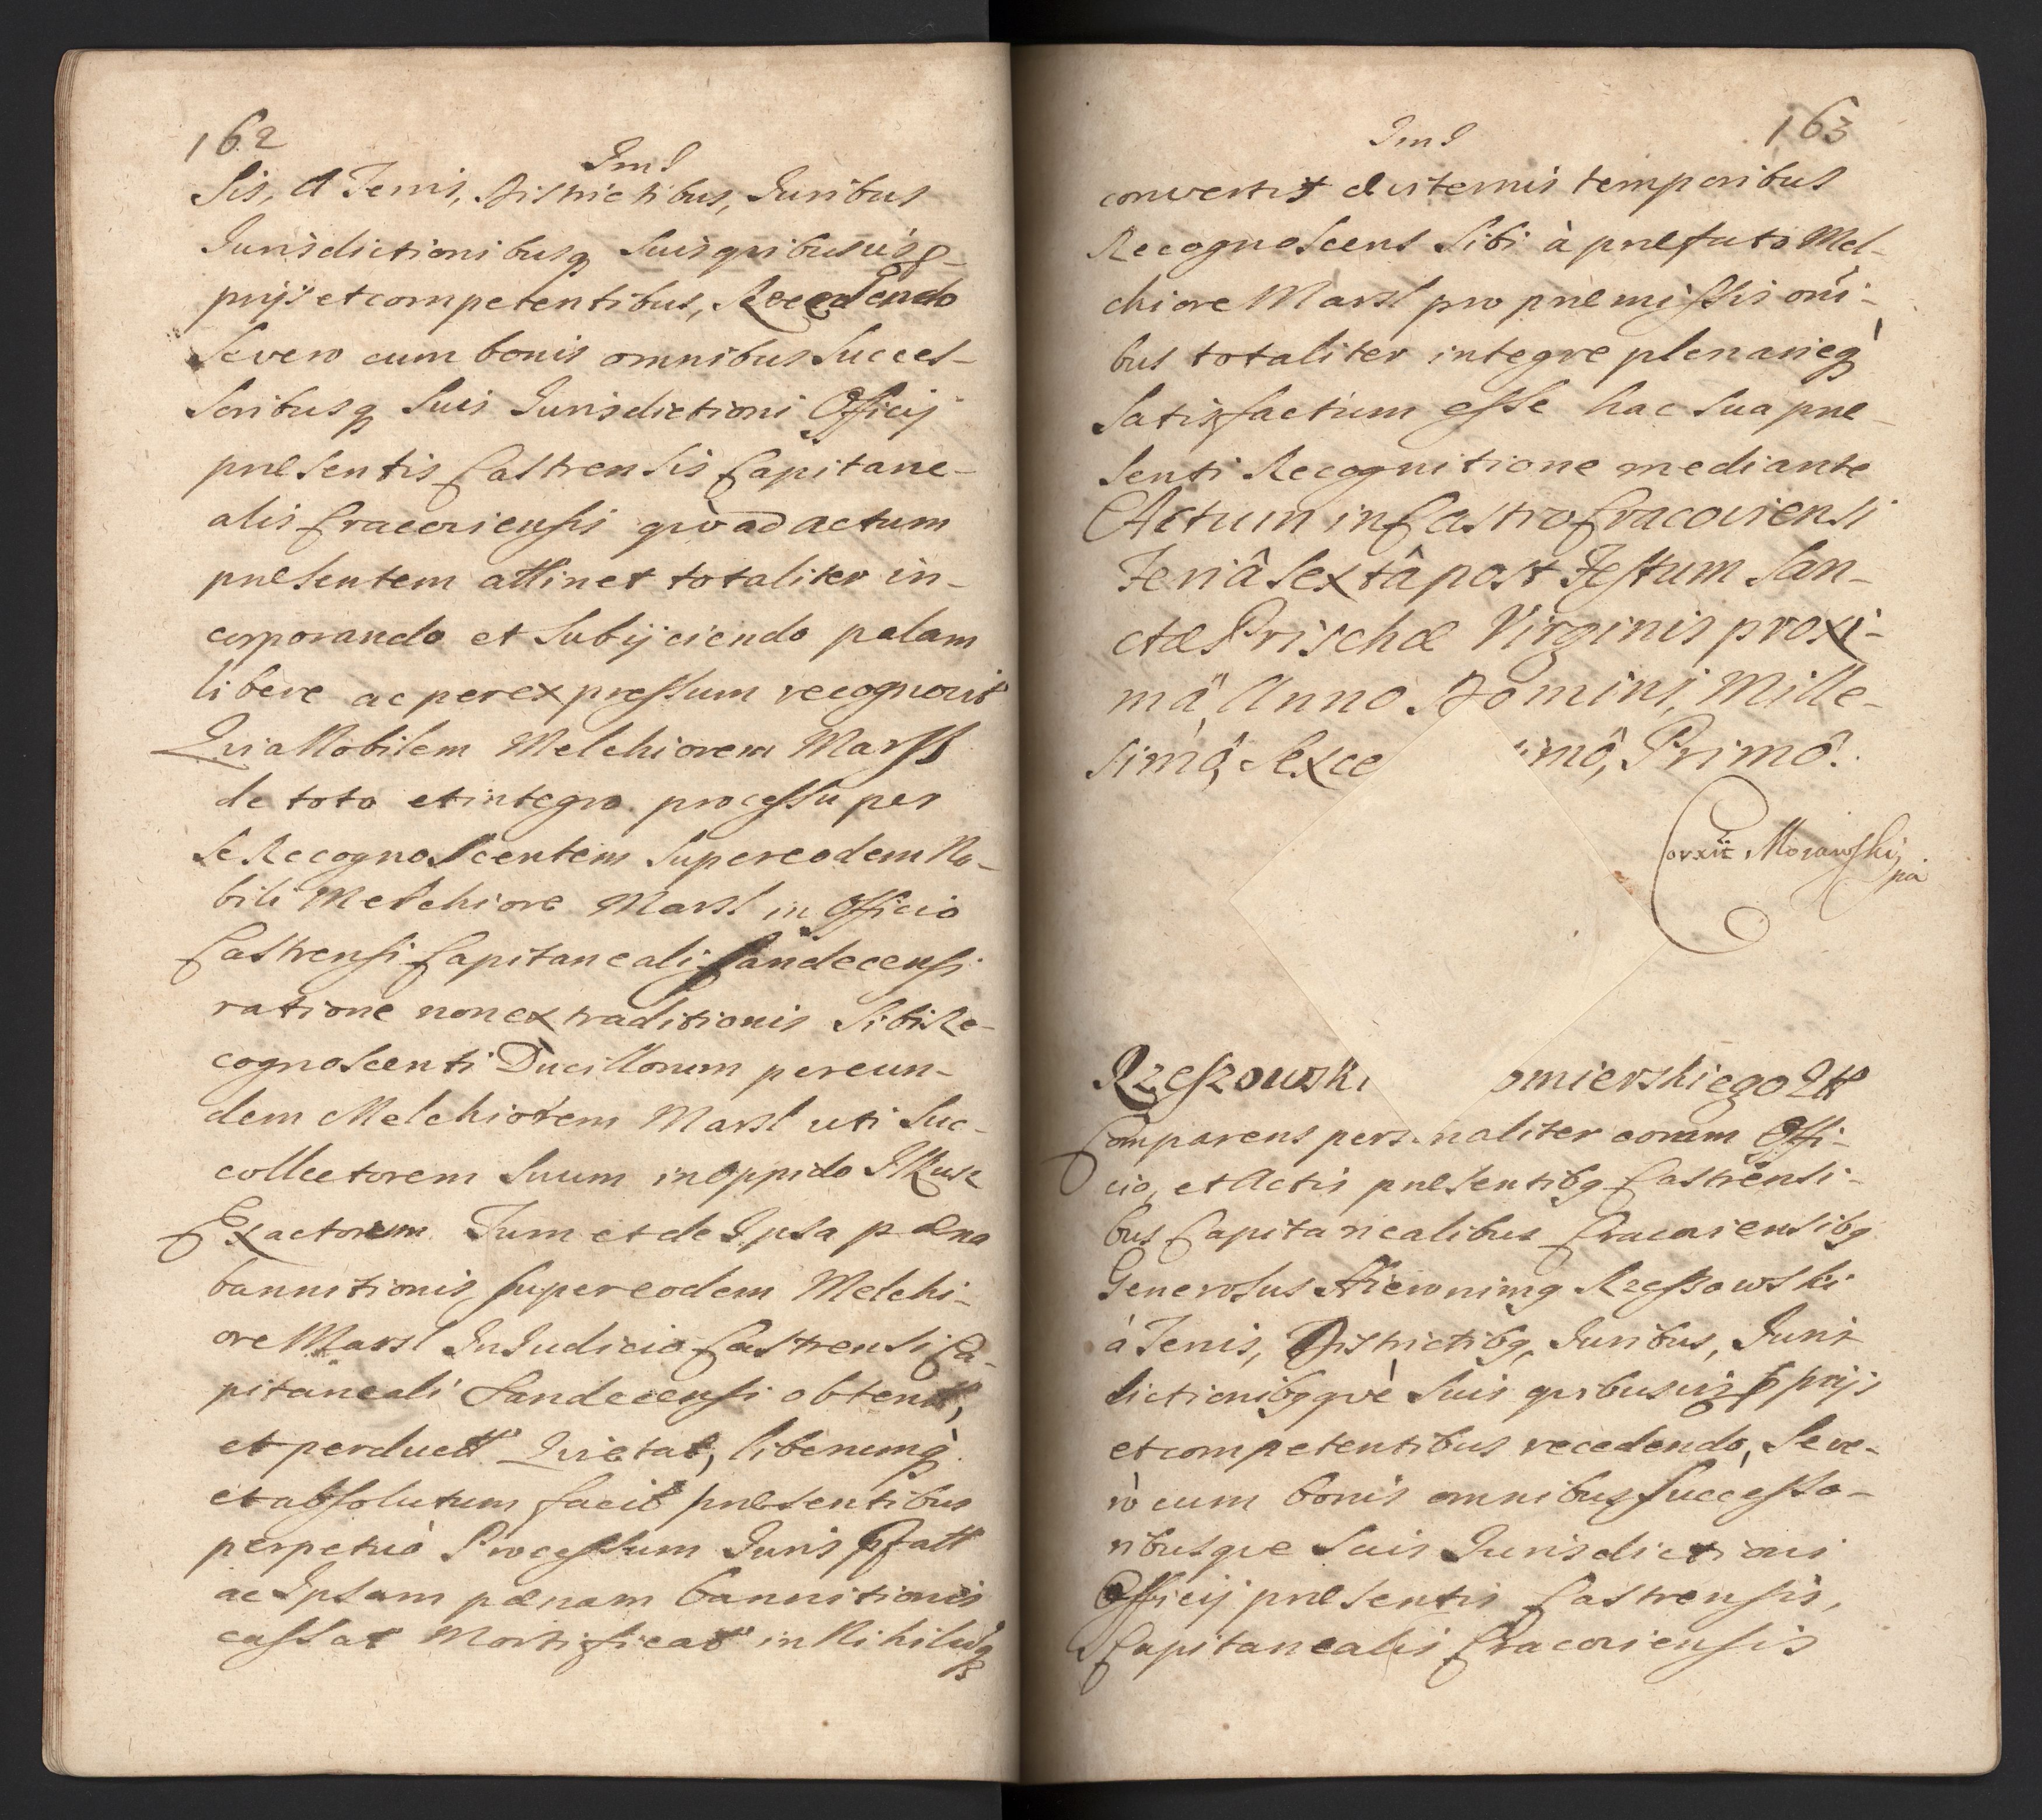 162
Im I
sis, A Terris, Districtibus, Iuribus
Iurisdictionibusq suis quibusvis p-
prijs et competentibus, Recedendo
se vero cum bonis omnibus succes-
soribusq suis Iurisdictioni Officij
præsentis Castrensis Capitane-
alis Cracoviensis quò ad actum
præsentem attinet totaliter in-
corporando et subijciendo palam
libere ac per expressum recognovit
Quia Nobilem Melchiorem Marss
de toto et integro processu per
se Recognoscentem super eodem No-
bili Melchiore Marsl in Officio
Castrensi Capitaneali Sandecensi
ratione non extraditionis sibi Re-
cognoscenti Ducillorum per eun-
dem Melchiorem Marsl uti suc-
collectorem suum in Oppido Ilkusz
Exactorem Tum et de Ipsa pæna
bannitionis super eodem Melchi-
ore Marsl In Iudicio Castrensi Ca-
pitaneali Sandecensi obtent,
et perduct Quietat, liberumq
et absolutum facit præsentibus
perpetuò Processum Iuris pfatt
ac Ipsam pænam bannitionis
cassat Mortificat in Nihilumq
163
Im I
convertit æviternis temporibus
Recognoscens sibi à præfato Mel-
chiore Marsl pro præmissis omi-
bus totaliter integre plenarieq
satisfactum esse hac sua præ-
senti Recognitione mediante
Actum in Castro Cracoviensi
Feriâ sextâ post Festum San-
ctæ Prischæ Virginis proxi-
mâ, Anno Domini, Mille-
simô, sexce imô, Primô.
Corxit Morawskij
pa
Rzeszowski omierskiego Itt
Comparens personaliter coram Offi-
cio, et Actis præsentibq Castrensi-
bus Capitanealibus Cracoviensibq
Generosus Hieronimq Rzeszowski
à Terris, Districtibq, Iuribus, Iuris
dictionibqquè suis quibusvis pprijs
et competentibus recedendo, se ve-
rò cum bonis omnibus successo-
ribusque suis Iurisdictioni
Officij præsentis Castrensis,
Capitanealis Cracoviensis